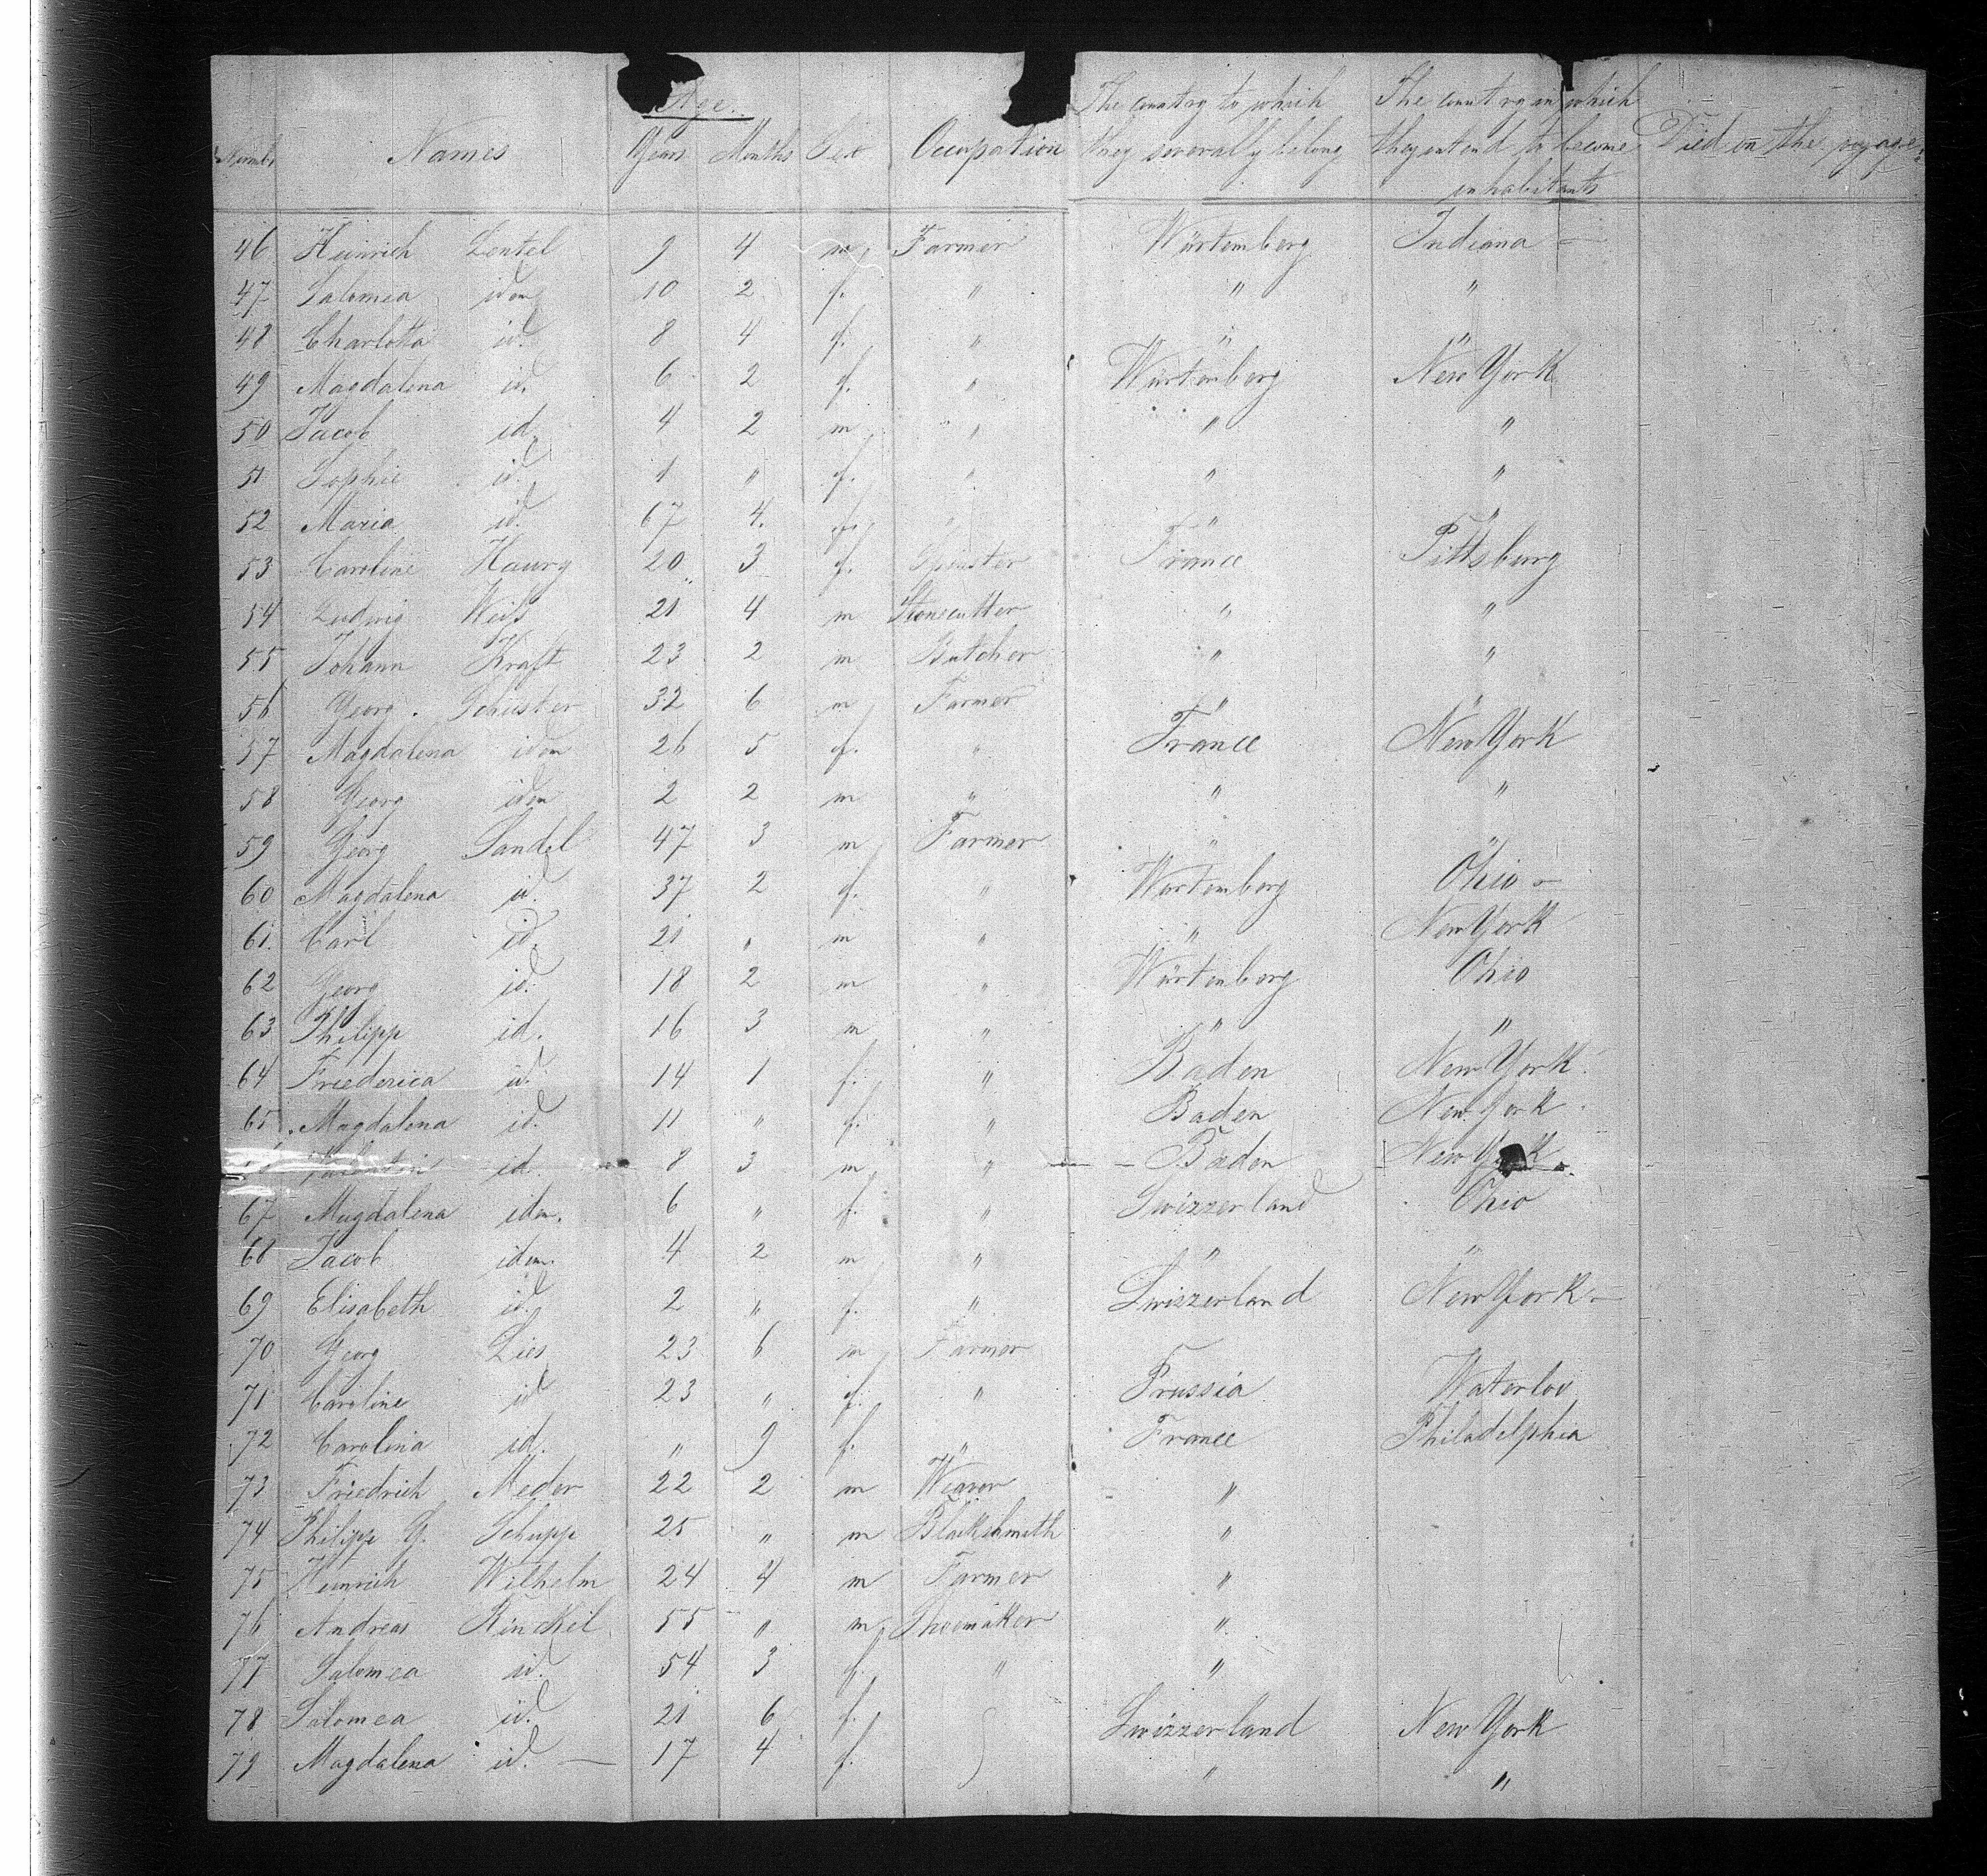 Age. The country to which The country in which
Names Years Months Sex Occupation they severally belong they entend to become Died on the voyage
inhabitants
46 Heinrich Lentel 9 4 m. Farmer Würtemberg Indiana —
47 Salomea idem 10 2 f. " " "
48 Charlotta id. 8 4 f. " " "
49 Magdalena id. 6 2 f. " Würtemberg New York
50 Jacob id. 4 2 m " " "
51 Sophie id. 1 " f. " " "
52 Maria id. 67 4. f. " " "
53 Caroline Haury 20 3 f. Spinster France Pittsburg
54 Ludwig Weiß 21 4 m Stonecutter " "
55 Johann Kraft 23 2 m Butcher " "
56 Georg. Schuster 32 6 m Farmer " "
57 Magdalena idem 26 5 f. " France New York
58 Georg idem 2 2 m " " "
59 Georg Sandel 47 3 m Farmer " "
60 Magdalena id. 37 2 f. " Wurtemberg Ohio —
61. Carl id. 21 " m " " New York
62 Georg id. 18 2 m " Würtemberg Ohio
63 Philipp id. 16 3 m " " "
64 Friederica id. 14 1 f. " Baden New York.
65 Magdalena id. 11 " f. " Baden New York.
id. 8 3 m " — Baden New York
67 Magdalena idem. 6 " f. " Swizzerland Ohio
68 Jacob idem. 4 2 m " " "
69 Elisabeth id. 2 " f. " Swizzerland New York —
70 Georg Lies 23 6 m Farmer
71 Caroline id 23 " f. " Prussia Waterloo
72 Carolina id. " 9 f. " France Philadelphia
73 Friedrich Meder 22 2 m Weaver "
74 Philipp G. Schupp 25 " m Blackshmith "
75 Heinrich Wilhelm 24 4 m Farmer "
76 Andreas Rinckel 55 " m Shoemaker "
77 Salomea id. 54 3 f. " "
78 Salomea id. 21 6 f. Swizzerland New York
79 Magdalena id. — 17 4 f. " "